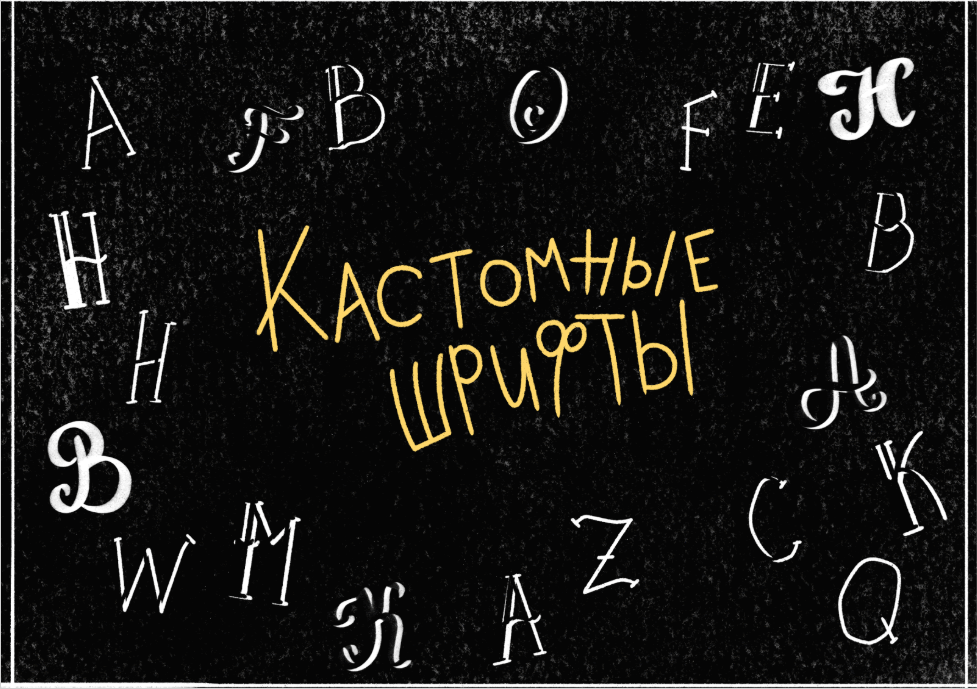 A F B O F E H
H B
Кастомные
шрифты
H A
B K
W M Z C
K A Q